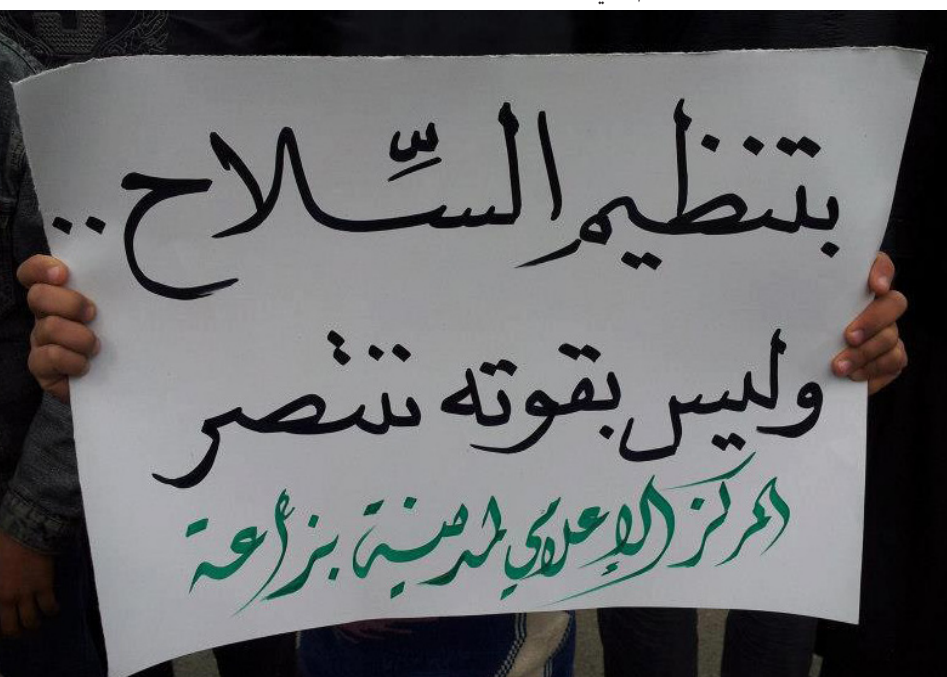 بتنظيم السِّلاح..
وليس بقوته ننتصر
المركز الإعلامي لمدينة بزاعة